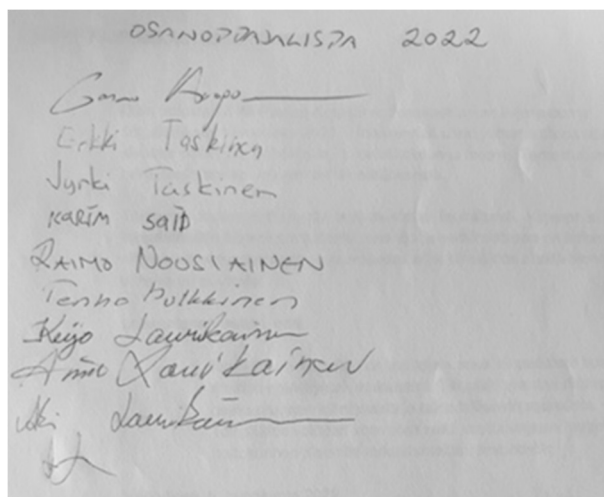 OSANOTTAJALISTA 2022
Erkki Taskinen
Jyrki Taskinen
KARIM SAID
RAIMO NOUSIAINEN
Tenho Pulkkinen
Keijo Laurikainen
Aimo Laurikainen
Laurikainen